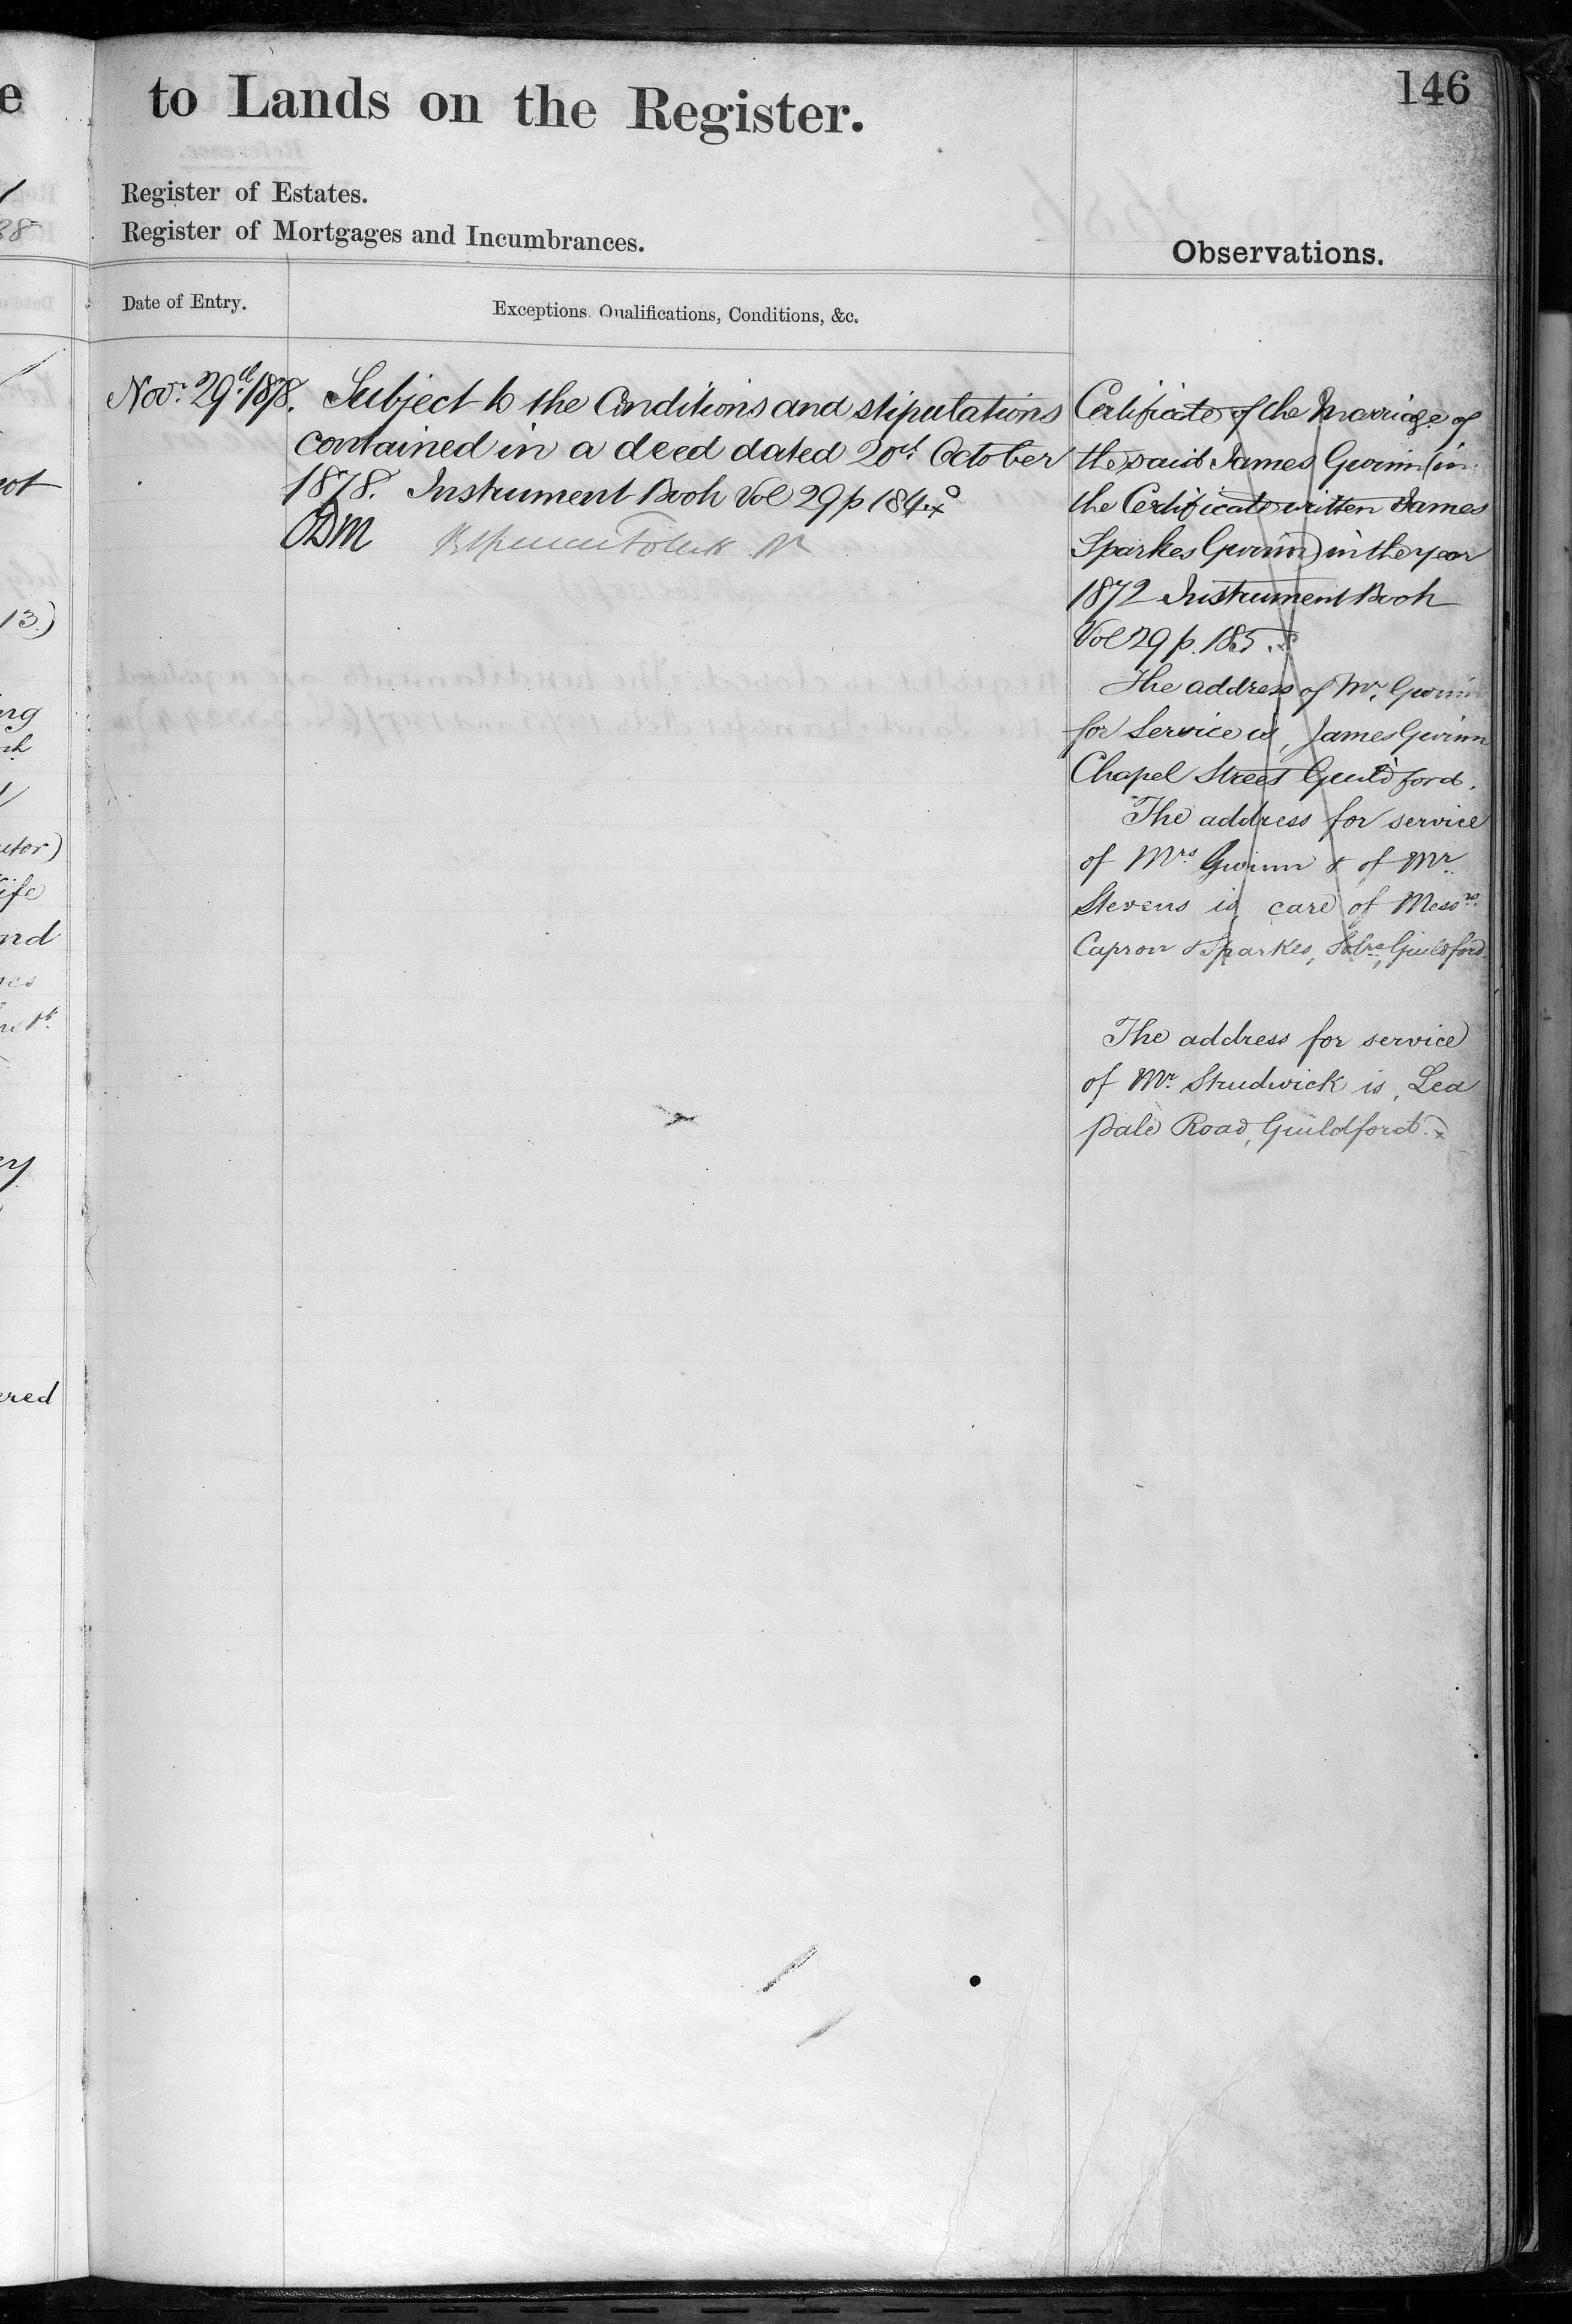 146
to Lands on the Register.
Register of Estates.
Register of Mortgages and Incumbrances.
Observations.
Date of Entry.
Exceptions, Qualifications, Conditions, &c.
Novr. 29th 1878.
Subject to the Conditions and stipulations
contained in a deed dated 20th October
1878. Instrument Book Vol 29 p 184
Certificate of the Marriage of
the said James Gwinn (in
the Certificate written James
Sparkes Gwinn) in the year
1872 Instrument Book
Vol 29 p. 185.
The address of Mr. Gwinn
for Service is, James Gwinn
Chapel Street Guildford.
The address for service
of Mrs Gwinn & of Mr.
Stevens is, care of Messrs.
Capron & Sparkes, Solrs, Guildford.
The address for service
of Mr. Strudwick is, Lea
Pale Road, Guildford.
13.)
ife
nd
ered